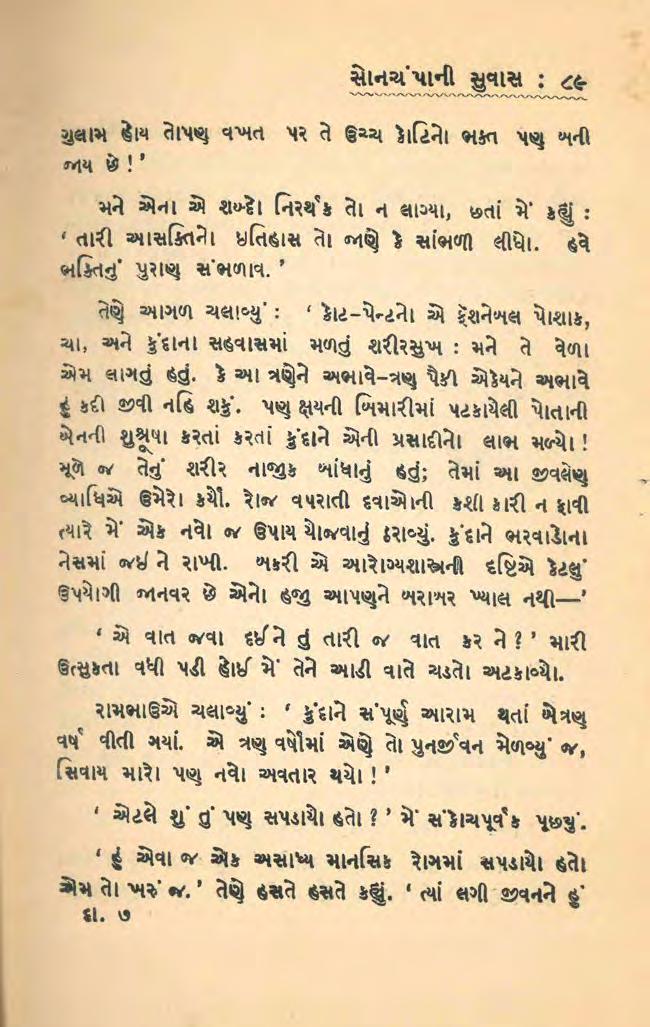 સોનચંપાની સુવાસ : ૮૯
ગુલામ હોય તોપણ વખત પર તે ઉચ્ચ કોટિનો ભક્ત પણ બની
જાય છે !’
મને એના એ શબ્દો નિરર્થક તો ન લાગ્યા, છતાં મેં કહ્યું :
‘ તારી આસક્તિનો ઇતિહાસ તો જાણે કે સાંભળી લીધો. હવે
ભક્તિનું પુરાણ સંભળાવ. ’
તેણે આગળ ચલાવ્યું : ‘ કોટ–પેન્ટનો એ ફૅશનેબલ પોશાક,
ચા, અને કુંદાના સહવાસમાં મળતું શરીરસુખ : મને તે વેળા
એમ લાગતું હતું. કે આ ત્રણેને અભાવે–ત્રણ પૈકી એકેયને અભાવે
હું કદી જીવી નહિ શકું. પણ ક્ષયની બિમારીમાં પટકાયેલી પોતાની
બેનની શુશ્રૂષા કરતાં કરતાં કુંદાને એની પ્રસાદીનો લાભ મળ્યો !
મૂળે જ તેનું શરીર નાજુક બાંધાનું હતું; તેમાં આ જીવલેણ
વ્યાધિએ ઉમેરો કર્યો. રોજ વપરાતી દવાઓની કશી કારી ન ફાવી
ત્યારે મેં એક નવો જ ઉપાય યોજવાનું ઠરાવ્યું. કુંદાને ભરવાડોના
નેસમાં જઈ ને રાખી. બકરી એ આરોગ્યશાસ્ત્રની દૃષ્ટિએ કેટલું
ઉપયોગી જાનવર છે એનો હજી આપણને બરાબર ખ્યાલ નથી—’
‘ એ વાત જવા દઈને તું તારી જ વાત કર ને ? ’ મારી
ઉત્સુકતા વધી પડી હોઈ મેં તેને આડી વાતે ચડતો અટકાવ્યો.
રામભાઉએ ચલાવ્યું : ‘ કુંદાને સંપૂર્ણ આરામ થતાં બેત્રણ
વર્ષ વીતી ગયાં. એ ત્રણ વર્ષોમાં એણે તો પુનર્જીવન મેળવ્યું જ,
સિવાય મારો પણ નવો અવતાર થયો ! ’
‘ એટલે શું તું પણ સપડાયો હતો ? ’ મેં સંકોચપૂર્વક પૂછ્યું.
‘ હું એવા જ એક અસાધ્ય માનસિક રોગમાં સપડાયો હતો
એમ તો ખરું જ. ’ તેણે હસતે હસતે કહ્યું. ‘ ત્યાં લગી જીવનને હું
દા. ૭